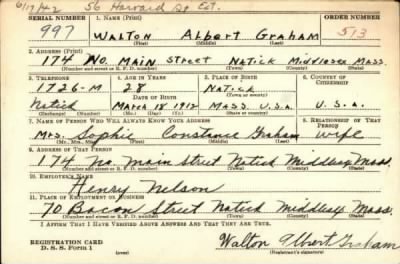 6/17/42 56 Harvard St Ext.
SERIAL NUMBER 1. Name (Print) ORDER NUMBER
997 Walton Albert Graham 513
(First) (Middle) (Last)
2. Address (Print)
174 No. Main Street Natick Middlesex Mass.
(Number and street or R. F. D. number) (Town) (County) (State)
3. Telephone 4. Age in Years 5. Place of Birth 6. Country of Citizenship
1726-M 28 Natick
Date of Birth (Town or county)
Natick March 18 1912 Mass. U.S.A. U.S.A.
(Exchange) (Number) (Mo.) (Day) (Yr.) (State or country)
7. Name of Person Who Will Always Know Your Address 8. Relationship of That Person
Mrs. Sophie Constance Graham wife
(Mr., Mrs., Miss) (First) (Middle) (Last)
9. Address of That Person
174 No. Main Street Natick Middlesex Mass.
(Number and street or R. F. D. number) (Town) (County) (State)
10. Employer's Name
Henry Nelson
11. Place of Employment or Business
70 Bacon Street Natick Middlesex Mass.
(Number and street or R. F. D. number) (Town) (County) (State)
I Affirm That I Have Verified Above Answers And That They Are True.
REGISTRATION CARD
D. S. S. Form 1 (over) Walton Albert Graham
(Registrant's signature)